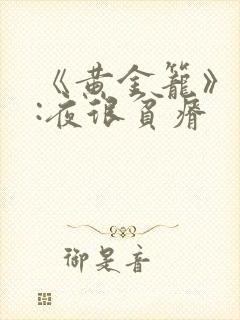 《黄金籠》
:夜很貧瘠
御是音